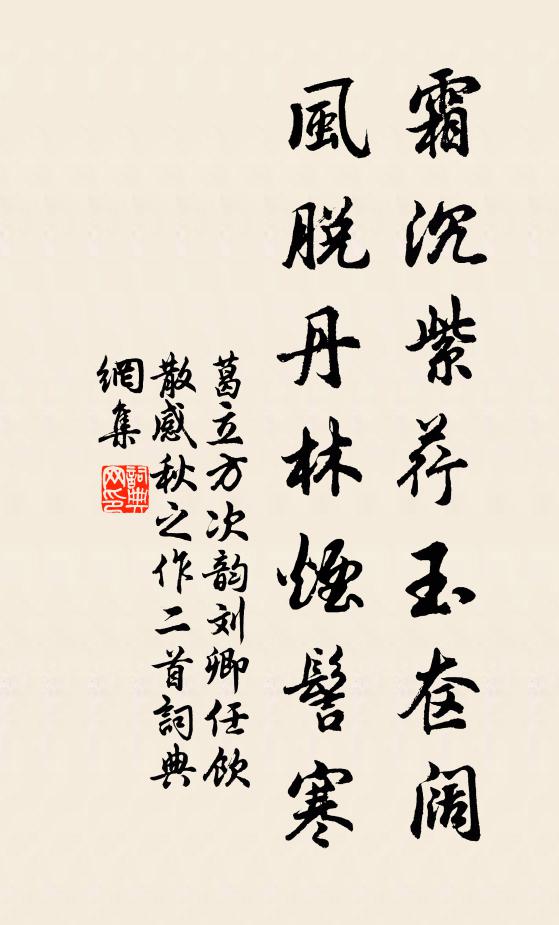 霜沉紫荇玉奁阔
風脱丹林煙髻寒
葛立方次韵刘卿任飲
散感秋之作二首詞典
網集
詞典网印